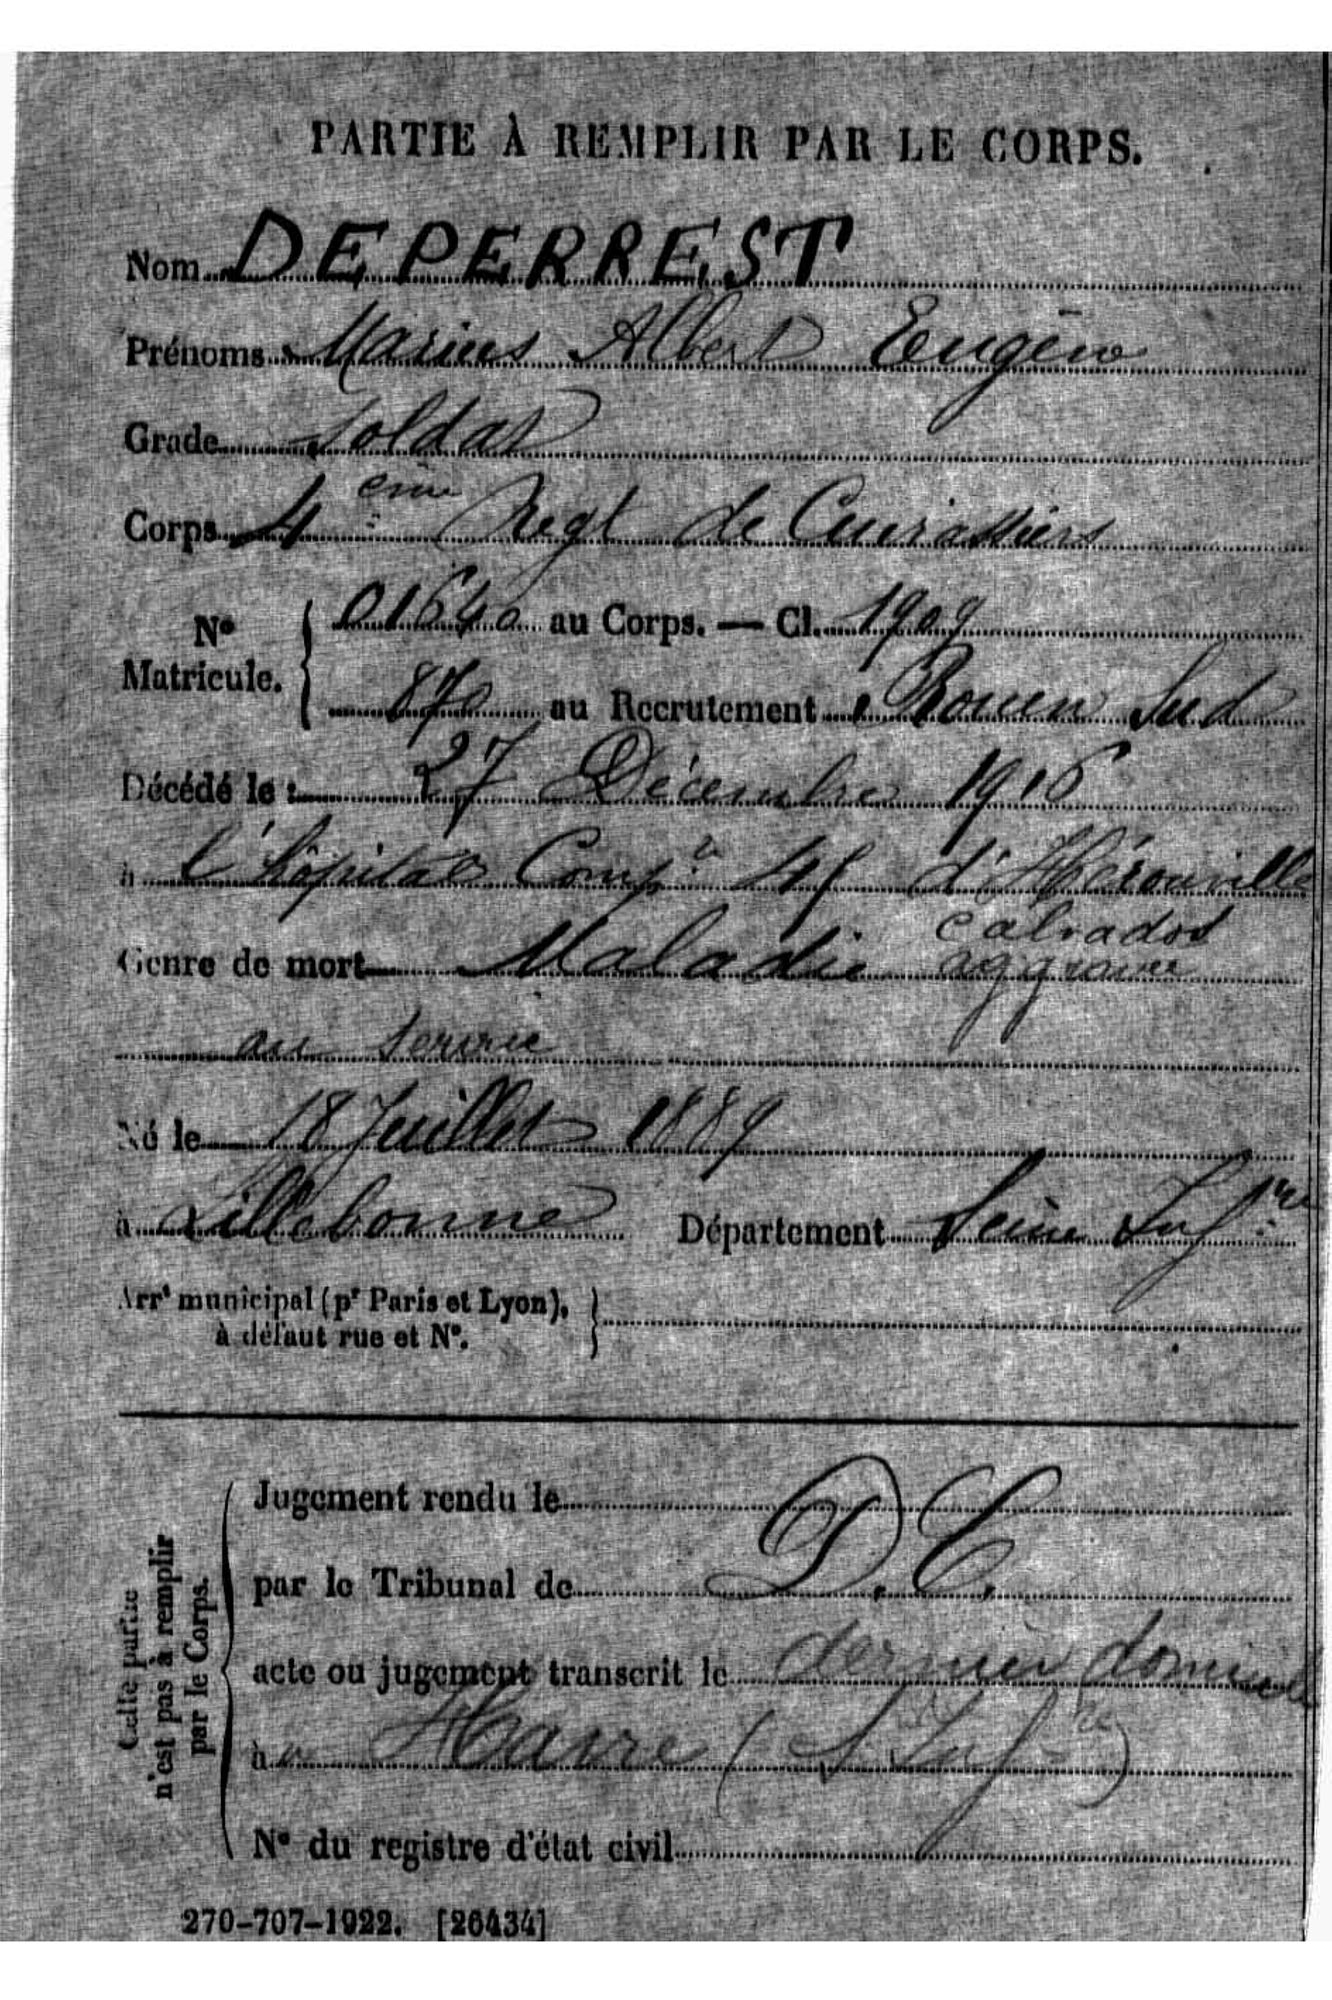 PARTIE À REMPLIR PAR LE CORPS.
Nom DEPERREST
Prénoms Marius Albert Eugène
Grade Soldat
Corps 4 ème Regt de Cuirassiers
No Matricule. { 01640 au Corps. — Cl. 1909
870 au Recrutement Rouen Sud
Décédé le : 27 Décembre 1916
à l'hôpital Comp.re 45 d'Hérouville
Calvados
Genre de mort Maladie aggravée
au service
Né le 18 Juillet 1889
à Lillebonne Département Seine Infre
Arrt municipal (pr Paris et Lyon), à défaut rue et No. }
Cette partie n'est pas à remplir par le Corps.
Jugement rendu le
par le Tribunal de D. C.
acte ou jugement transcrit le dernier domicile
à Havre (S Infre)
No du registre d'état civil
270-707-1922. [26434]